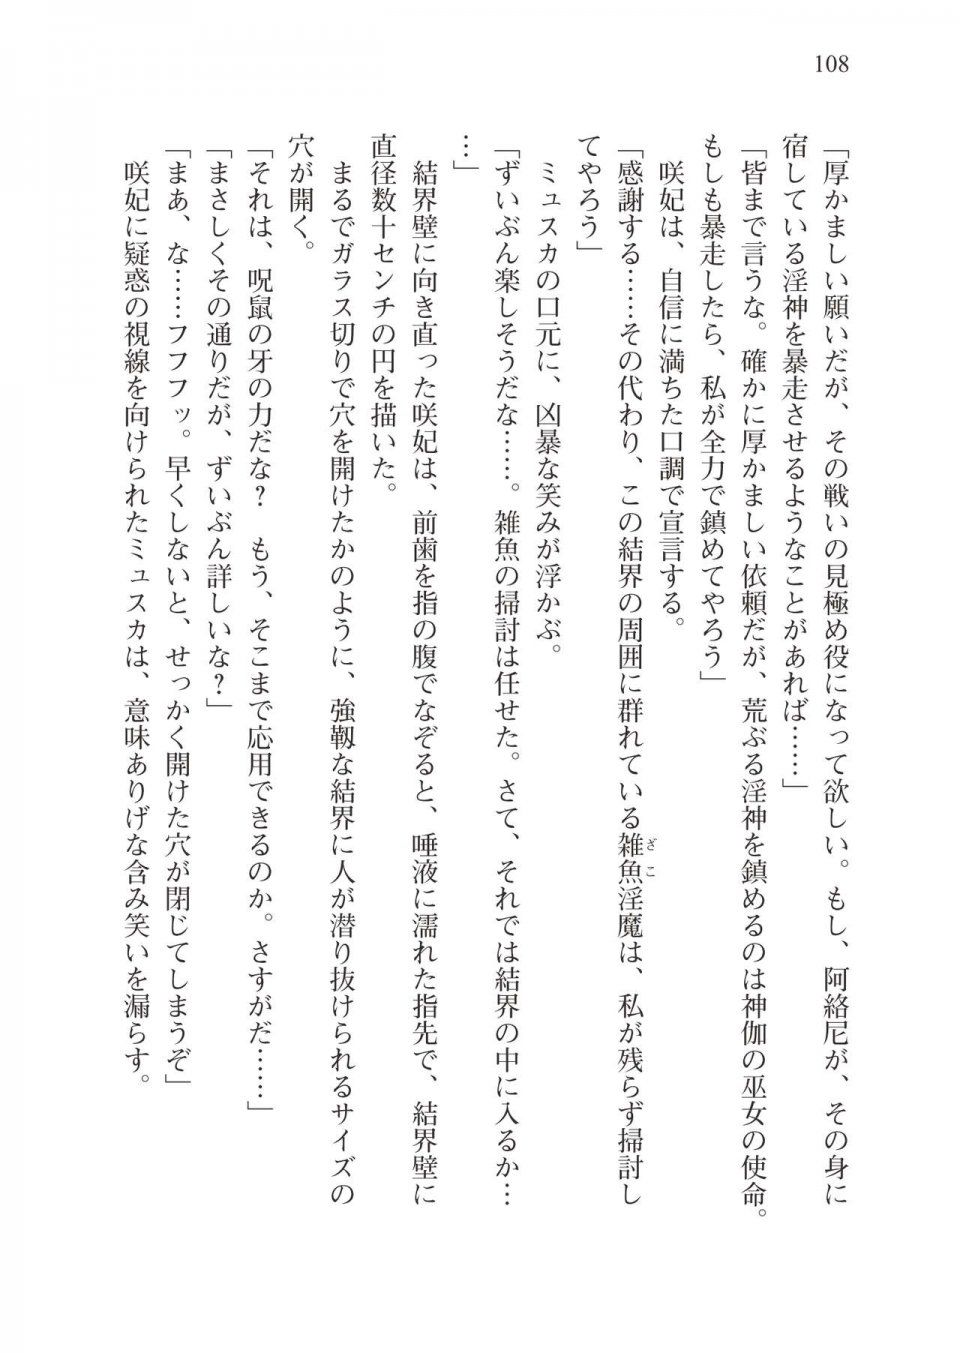 108
「厚かましい願いだが、その戦いの見極め役になって欲しい。もし、阿絡尼が、その身に
宿している淫神を暴走させるようなことがあれば……」
「皆まで言うな。確かに厚かましい依頼だが、荒ぶる淫神を鎮めるのは神伽の巫女の使命。
もしも暴走したら、私が全力で鎮めてやろう」
　咲妃は、自信に満ちた口調で宣言する。
「感謝する……その代わり、この結界の周囲に群れている雑魚淫魔は、私が残らず掃討し
ざこ
てやろう」
　ミュスカの口元に、凶暴な笑みが浮かぶ。
「ずいぶん楽しそうだな……。雑魚の掃討は任せた。さて、それでは結界の中に入るか…
…」
　結界壁に向き直った咲妃は、前歯を指の腹でなぞると、唾液に濡れた指先で、結界壁に
直径数十センチの円を描いた。
　まるでガラス切りで穴を開けたかのように、強靱な結界に人が潜り抜けられるサイズの
穴が開く。
「それは、呪鼠の牙の力だな？　もう、そこまで応用できるのか。さすがだ……」
「まさしくその通りだが、ずいぶん詳しいな？」
「まあ、な……フフフッ。早くしないと、せっかく開けた穴が閉じてしまうぞ」
　咲妃に疑惑の視線を向けられたミュスカは、意味ありげな含み笑いを漏らす。